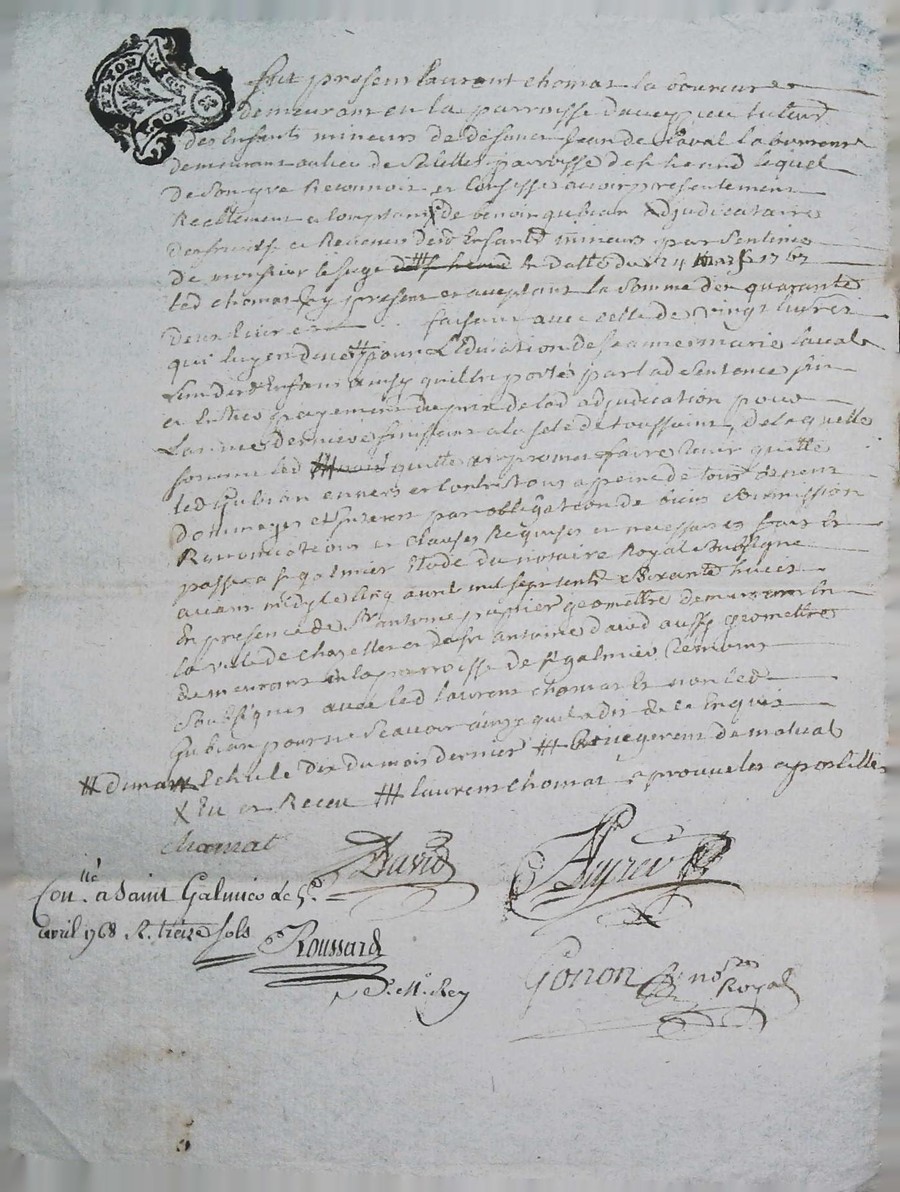 LYON
fut present Laurent chomat laboureur
demeurant en la parroisse daveyzieu tuteur
des Enfants mineurs de deffunt Jean de Laval laboureur
demeurant au lieu de parroisse de lequel
de Son gre Reconnoit et Confesse avoir presentement
Reellement et Comptant X de benoit gubian Adjudicataire
des fruits et Revenus desd Enfants mineurs par Sentence
de monsieur le juge de datte du 24 mars 1767
led chomat icy present et aceptant la Somme de quarante
deux livres faisant avec celle de vingt livres
qui luy en due # pour L'Education de Jeanne marie laval
Lun desd Enfans ainsy quil Est porté par lad Sentence fin
et Entier payement du prix de lad adjudication pour
Lannee derniere finissant a la fete de toussaint, de laquelle
somme led quitte et promet faire tenir quitte
led Gubian envers et Contre tous a peine de tous depens
dommages et interest par obligation de biens Soumission
Renonciations et clauses Requises et necessaires fait Et
passé a st galmier Etude du notaire Royal Soussigne
avant midy le cinq avril mil sept cent Soixante huict
En presence de Sr antoine puptier geometre demeurant En
la ville de chazelles et de Sr antoine david aussy geometre
demeurant En la parroisse de st galmier temoins
Soussignes avec led laurent chomat Et non led
Gubian pour ne Scavoir ainsy quil a dit de ce Enquis
# Echu le dix du mois dernier #
X Eu et Receu ### laurent Chomat aprouve les apostilles
chomat David
Con.lle a Saint Galmier le 5e
avril 1768 R. treize sols
Roussard
Gonon no.re Royal